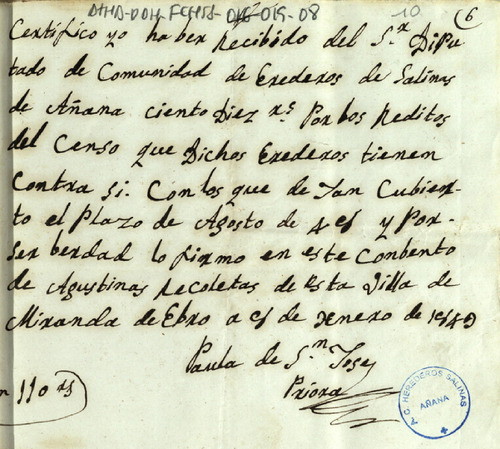 AHHA-DOH-FCHSA-
-019-08
10
6
Certifico yo haber Recibido del S.r Dipu
tado de Comunidad de Erederos de Salinas
de Añana ciento Diez r.s Por los Reditos
del Censo que Dichos Erederos tienen
Contra si. Con los que de Jan Cubier-
to el Plazo de Agosto de y Por-
Ser berdad lo firmo en este Conbento
de Agustinas Recoletas de esta Villa de
Miranda de Ebro a de Henero de
Paula de S.n Jose
Priora
n 110 rs
C. HEREDEROS SALINAS
AÑANA